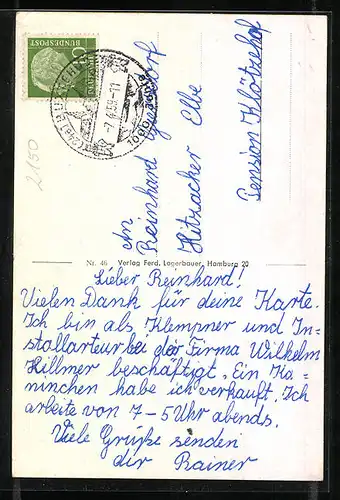 DEUTSCHE
BUNDESPOST
10
-7.4.59-11
2150
An
Reinhard
Hitzacker Elbe
Pension
Nr. 46 Verlag Ferd. Lagerbauer, Hamburg 20
Lieber Reinhard!
Vielen Dank für deine Karte.
Ich bin als Klempner und In=
stallarteur bei der Firma Wilhelm
Hillmer beschäftigt. Ein Ka=
ninchen habe ich verkauft. Ich
arbeite von 7-5 Uhr abends.
Viele Grüße senden
dir Rainer